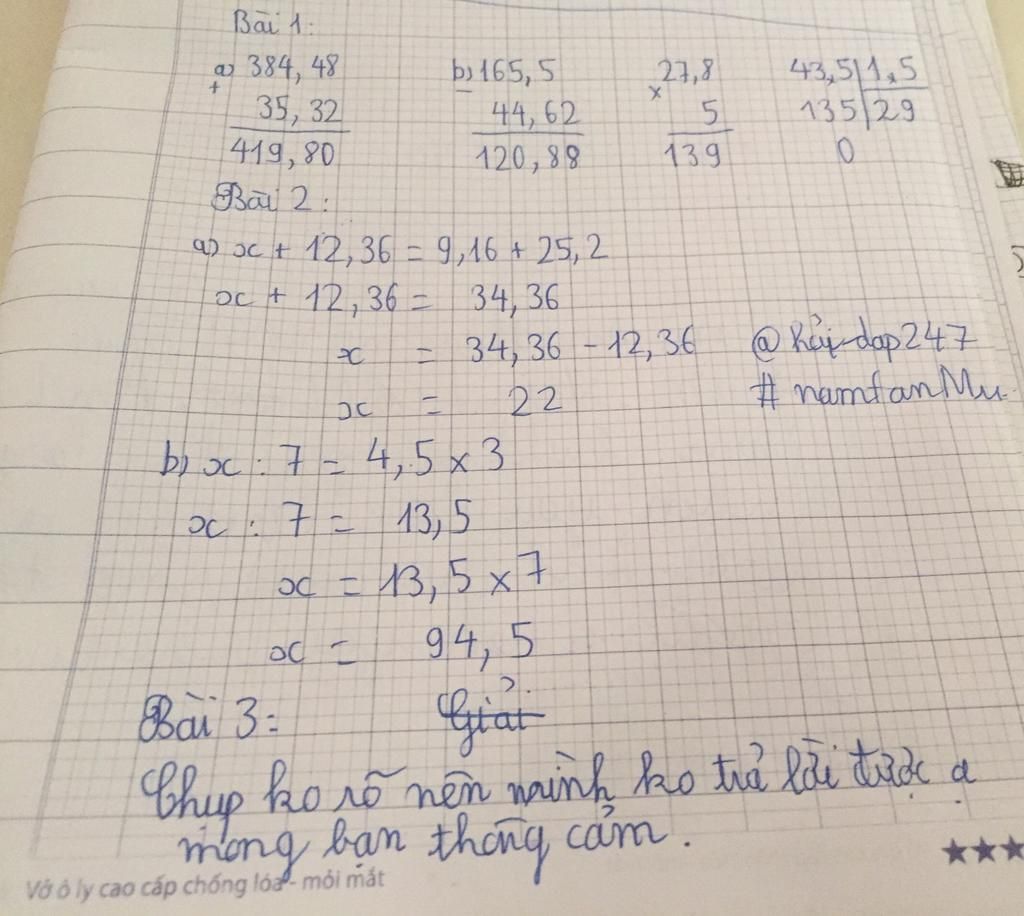 Bài 1:
a) 384,48 b) 165,5 27,8 43,5 1,5
+ - x
35,32 44,62 5 135 29
419,80 120,88 139 0
Bài 2:
a) x + 12,36 = 9,16 + 25,2
x + 12,36 = 34,36
x = 34,36 - 12,36 @hỏi-dap247
x = 22 # namfanMu
b) x : 7 = 4,5 x 3
x : 7 = 13,5
x = 13,5 x 7
x = 94,5
Bài 3: Giải
Chụp ko rõ nên mình ko trả lời được ạ
mong bạn thông cảm.
Vở ô ly cao cấp chống lóa - mỏi mắt